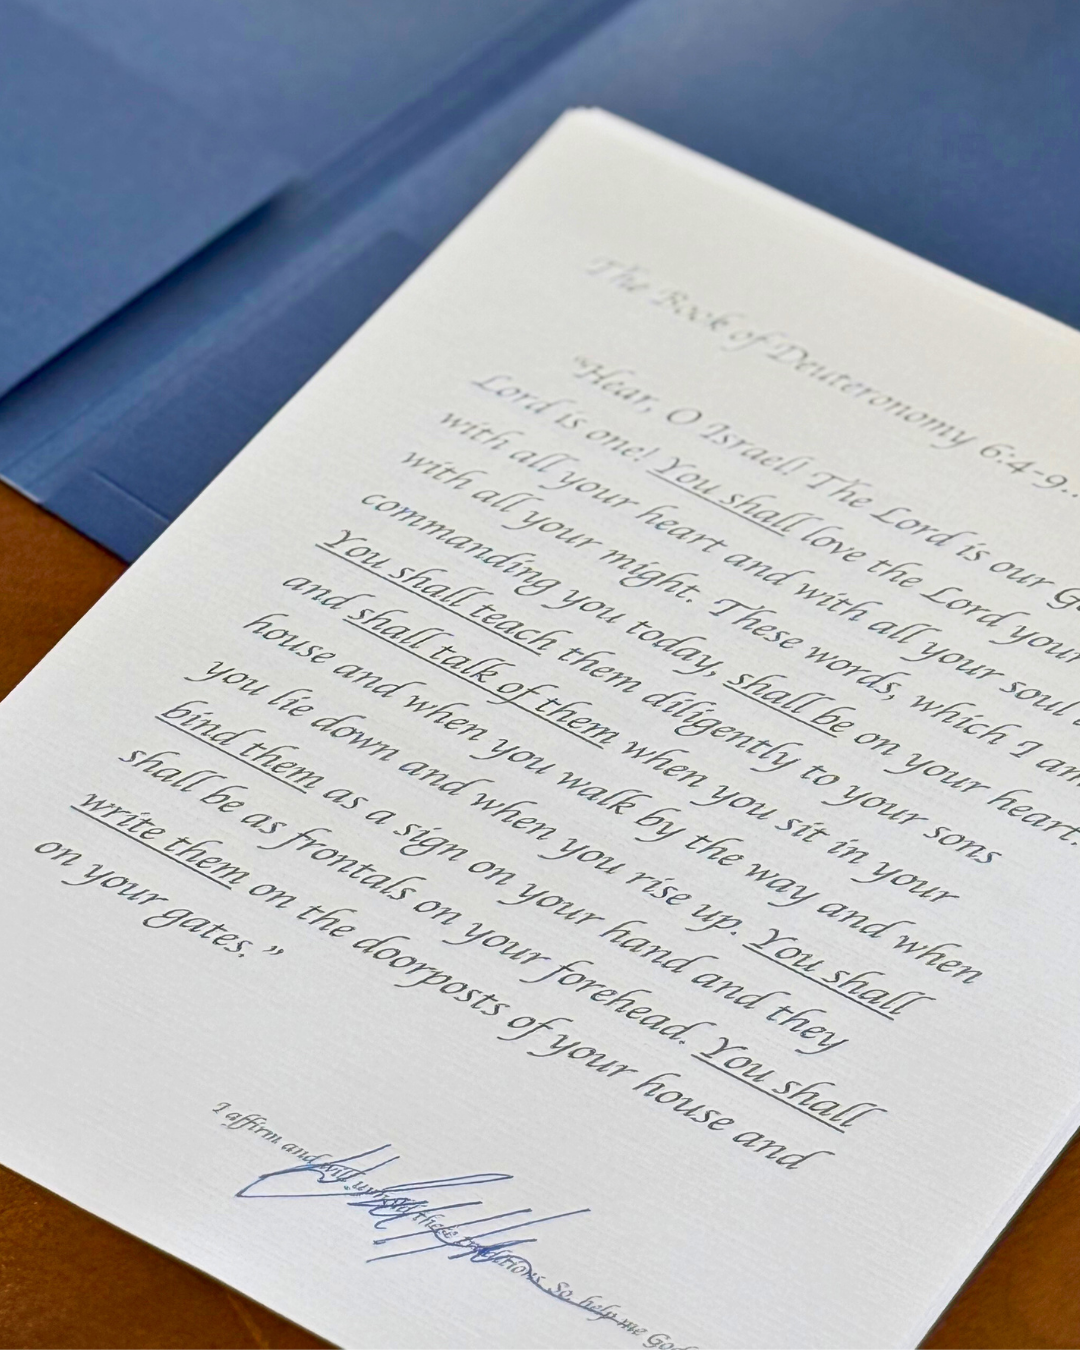 The Book of Deuteronomy 6:4-9...
“Hear, O Israel! The Lord is our
Lord is one! You shall love the Lord your
with all your heart and with all your soul
with all your might. These words, which I am
commanding you today, shall be on your heart.
You shall teach them diligently to your sons
and shall talk of them when you sit in your
house and when you walk by the way and when
you lie down and when you rise up. You shall
bind them as a sign on your hand and they
shall be as frontals on your forehead. You shall
write them on the doorposts of your house and
on your gates.”
I affirm and will uphold these traditions. So, help me God